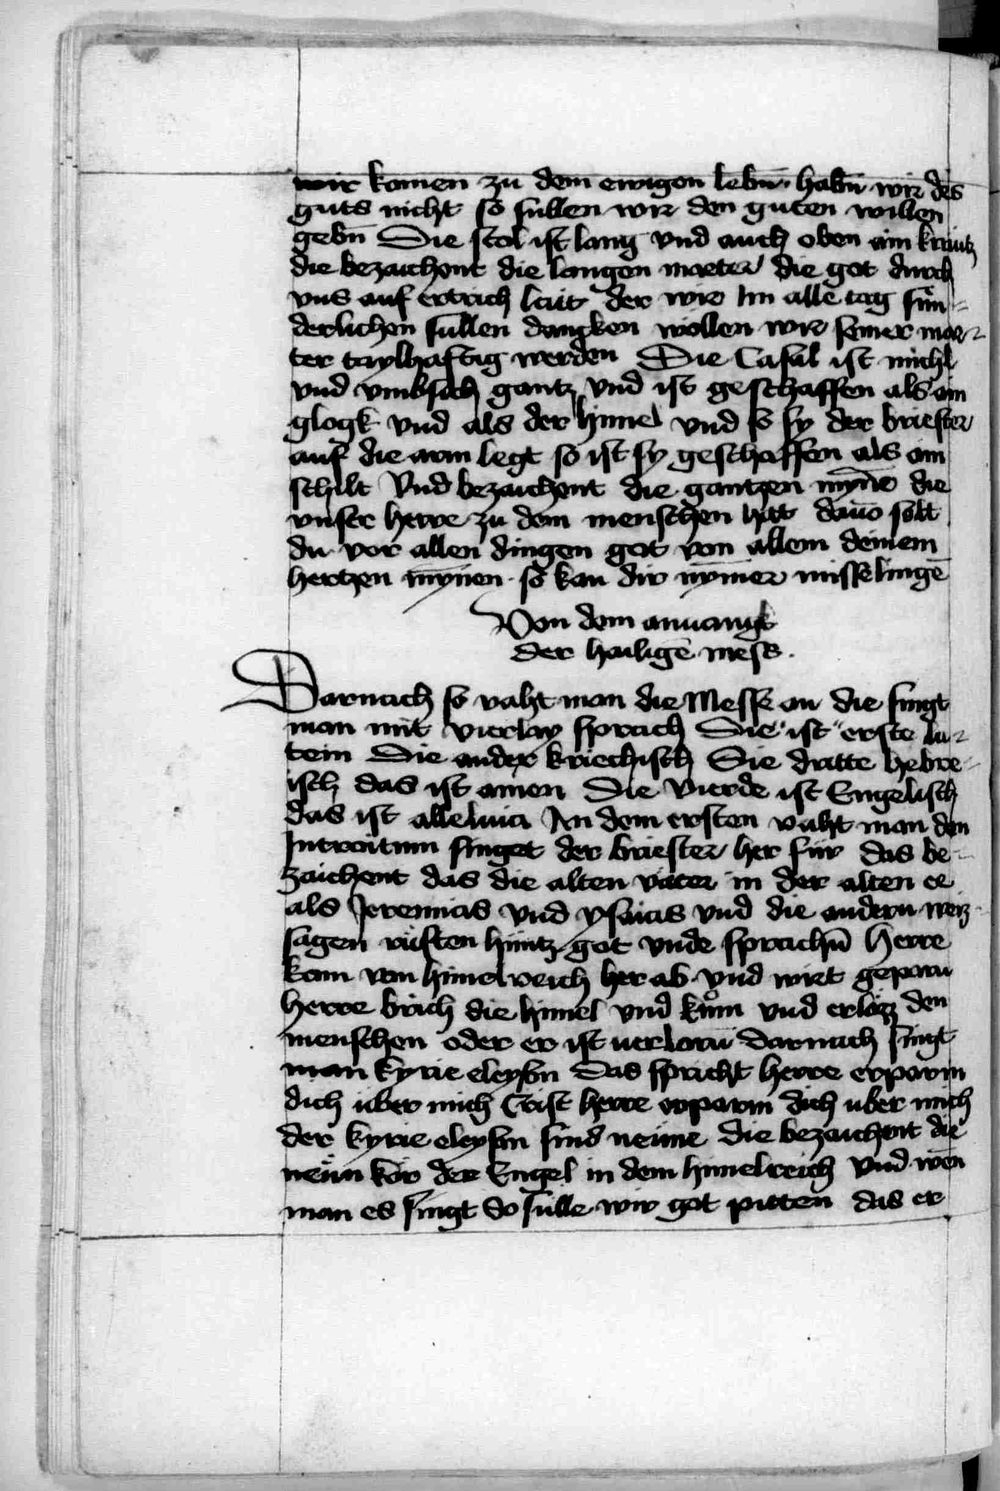 wir komen zu dem ewigen lebn̄ habn̄ wir des
guts nicht so sullen wir den guten willen
gebn̄ Die stol ist lang vnd auch oben ain kräutz
die bezaichent die langen marter die got durch
vns auf ertrich lait der wir Im alle tag sun-
derlichen sullen dangken wöllen wir seiner mar-
ter taylhaftig werden Die Casul ist michl
vnd vmbsich gantz vnd ist geschaffen als ain
glogk vnd als der himel vnd so sy der briester
auf die arm legt so ist sy geschaffen als ain
schilt Vnd bezaichent die gantzen myn̄e die
vnser herre zu dem menschen hat dauō solt
du vor allen dingen got von allem deinem
hertzen myn̄en so kan dir nym̄er misselingē
Von dem anuangk
der hailigē mess.
Darnach so vaht man die Messe an die singt
man mit vierlay sprach Die ist erste la-
tein Die ander kriechisch Die dritte hebre-
isch das ist amen Die Vierde ist Engelisch
das ist alleluia An dem ersten vaht man den
Introitum singet der briester her für das be-
zaichent das die alten väter in der alten ee
als Jeremias vnd ysaias vnd die andern weiz-
sagen rüften hintz got vnde sprachn̄ Herre
kom von himelreich her ab vnd wirt geporn
herre brich die himel vnd kum vnd erlöz den
menschen oder er ist uerlorn̄ Darnach singt
man kyrie eleyson Das spricht herre erparm
dich über mich Crist herre erparm dich uber mich
der kyrie eleyson sind neüne die bezaichent die
neün kör der Engel in dem himelreich vnd wen
man es singt so sulle wir got pitten das er